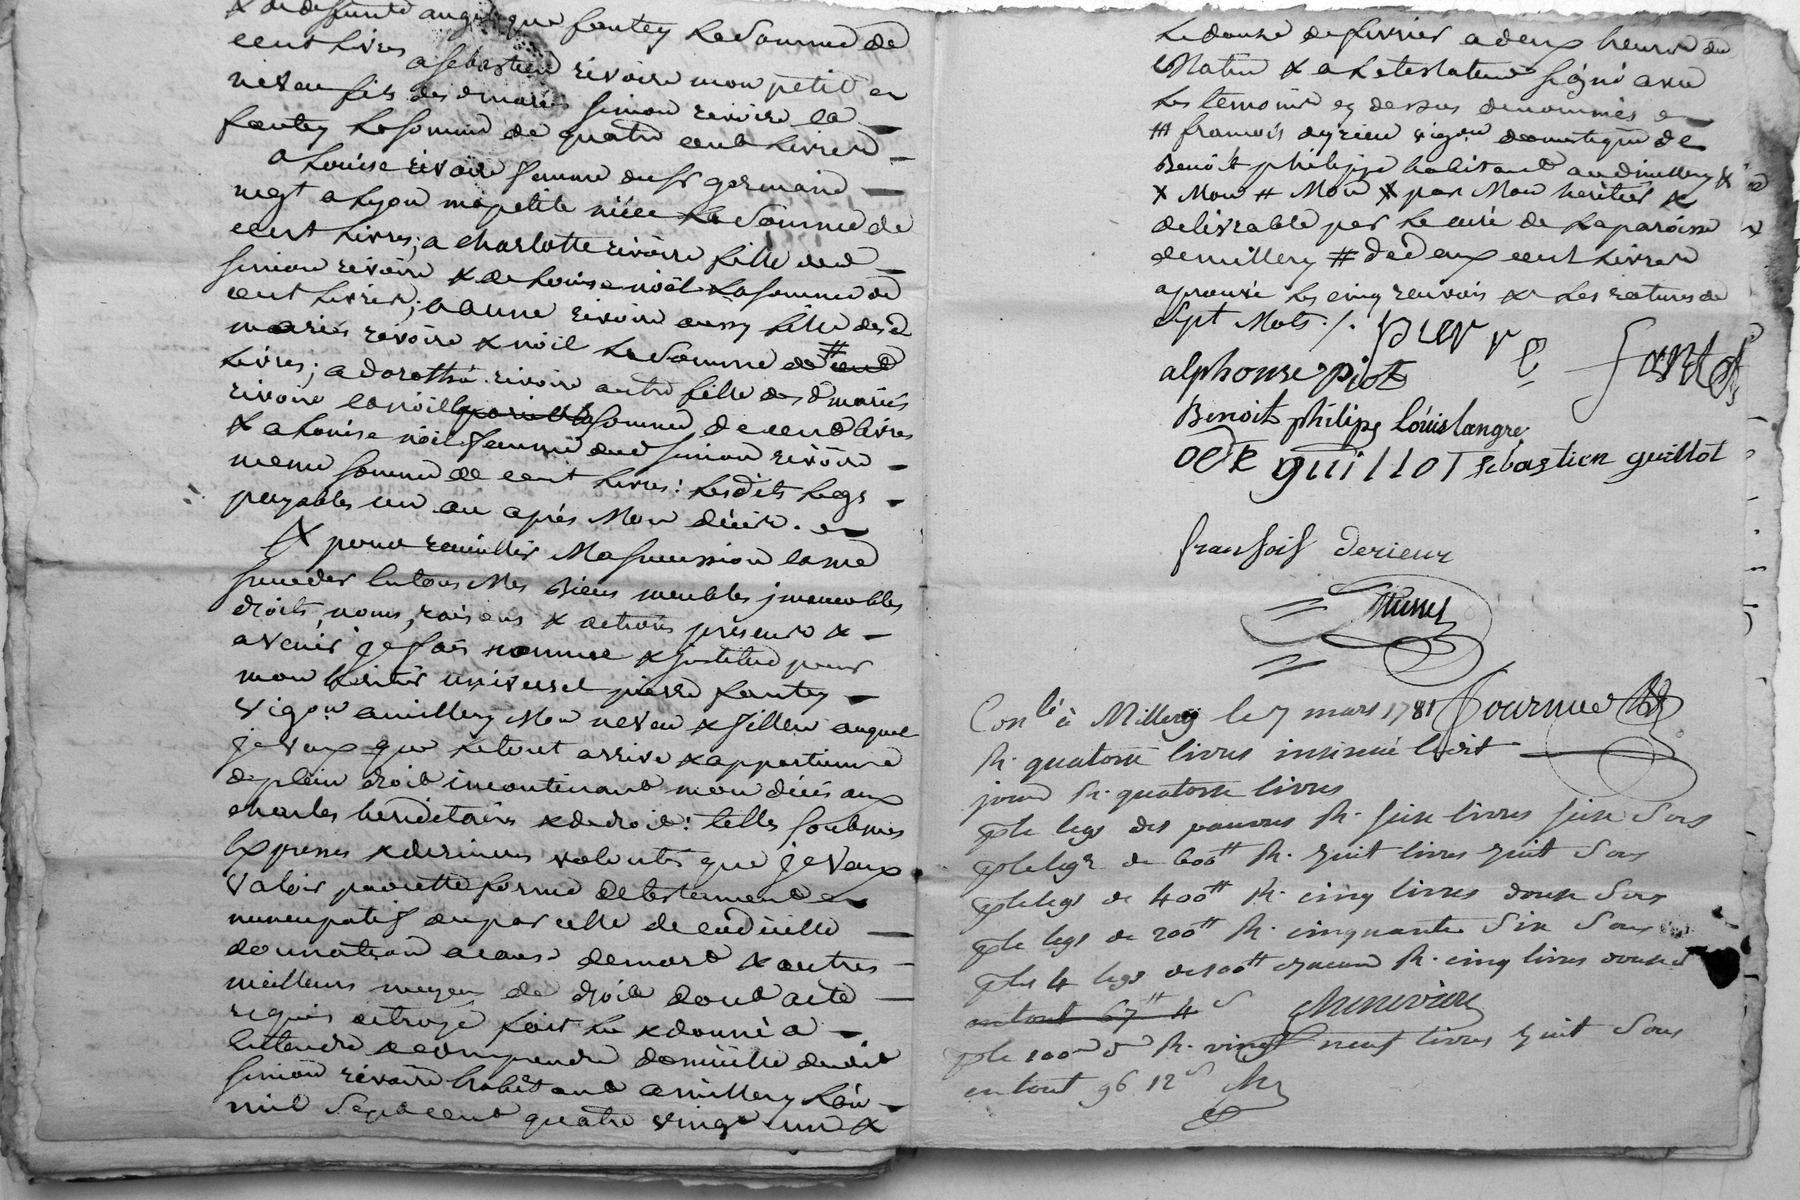 & de deffunte angelique fantey la somme de
cent livres a sebastien rivoire mon petit
neveu fils des d mariés simon rivoire &
fantey la somme de quatre cent livres
a Louise rivoire femme du sr germain
negt a Lyon ma petite niéce la somme de
cent livres; a charlotte rivoire fille dud
simon rivoire & de Louise noël la somme de
cent livres; a anne rivoire aussy fille desd
mariés rivoire & noël la somme de # cent
Livres; a dorothé rivoire autre fille des d mariés
rivoire & noël la somme de cent livres
& a Louise noël femme dud simon rivoire
meme somme de cent livres: lesdits legs
payables un an aprés Mon décés.
& pour recuillir Ma succession & me
succeder en tous Mes biens meubles immeubles
droits, noms, raisons & actions présents &
avenir je fais nomme & institue pour
mon heritier universel pierre fantey
vigon a millery Mon neveu & filleu auquel
je veux que le tout arrive & appartienne
de plein droit incontinant mon décés aux
charges hereditaires & de droit: telles sont mes
Expresses & dernieres volontés que je veux
valoir par cette forme de testement
nuncupatif ou par celle de codicille
donnation a cause de mort & autres
meilleurs moyen de droit dont acte
requis octroyé fait lu & donné a
entendre & comprendre domicille dudit
simon rivoire habitant a millery L'an
mil sept cent quatre vingt un &
Le douze de fevrier a deux heures du
Matin & a le testateur signé avec
Les temoins cy dessus denommés
# francois deyrieu vigon domestique de
Benoit philippe habitant aud millery &
X Mon # Mon X par Mon heritier &
delivrable par le curé de la paroisse
de millery # de deux cent livres
aprouvé les cinq renvois & les ratures de
sept Mots ./. pierre fantey
alphonse piot
Benoit philipe Louis langre
guillot sebastien guillot
fransois derieux
Conlé à Millery le 7 mars 1781 Fournier
R. quatorze livres insinué ledit
jour R. quatorze livres
p le legs des pauvres R. seize livres seize sols
p le legs de 600tt R. huit livres huit sols
p le legs de 400tt R. cinq livres douze sols
p le legs de 200tt R. cinquante six sols
p les 4 legs de 100tt chacun R. cinq livres douze s
en tout 67tt 4s
p le 100e d R. vingt neuf livres huit sols
en tout 96 12s